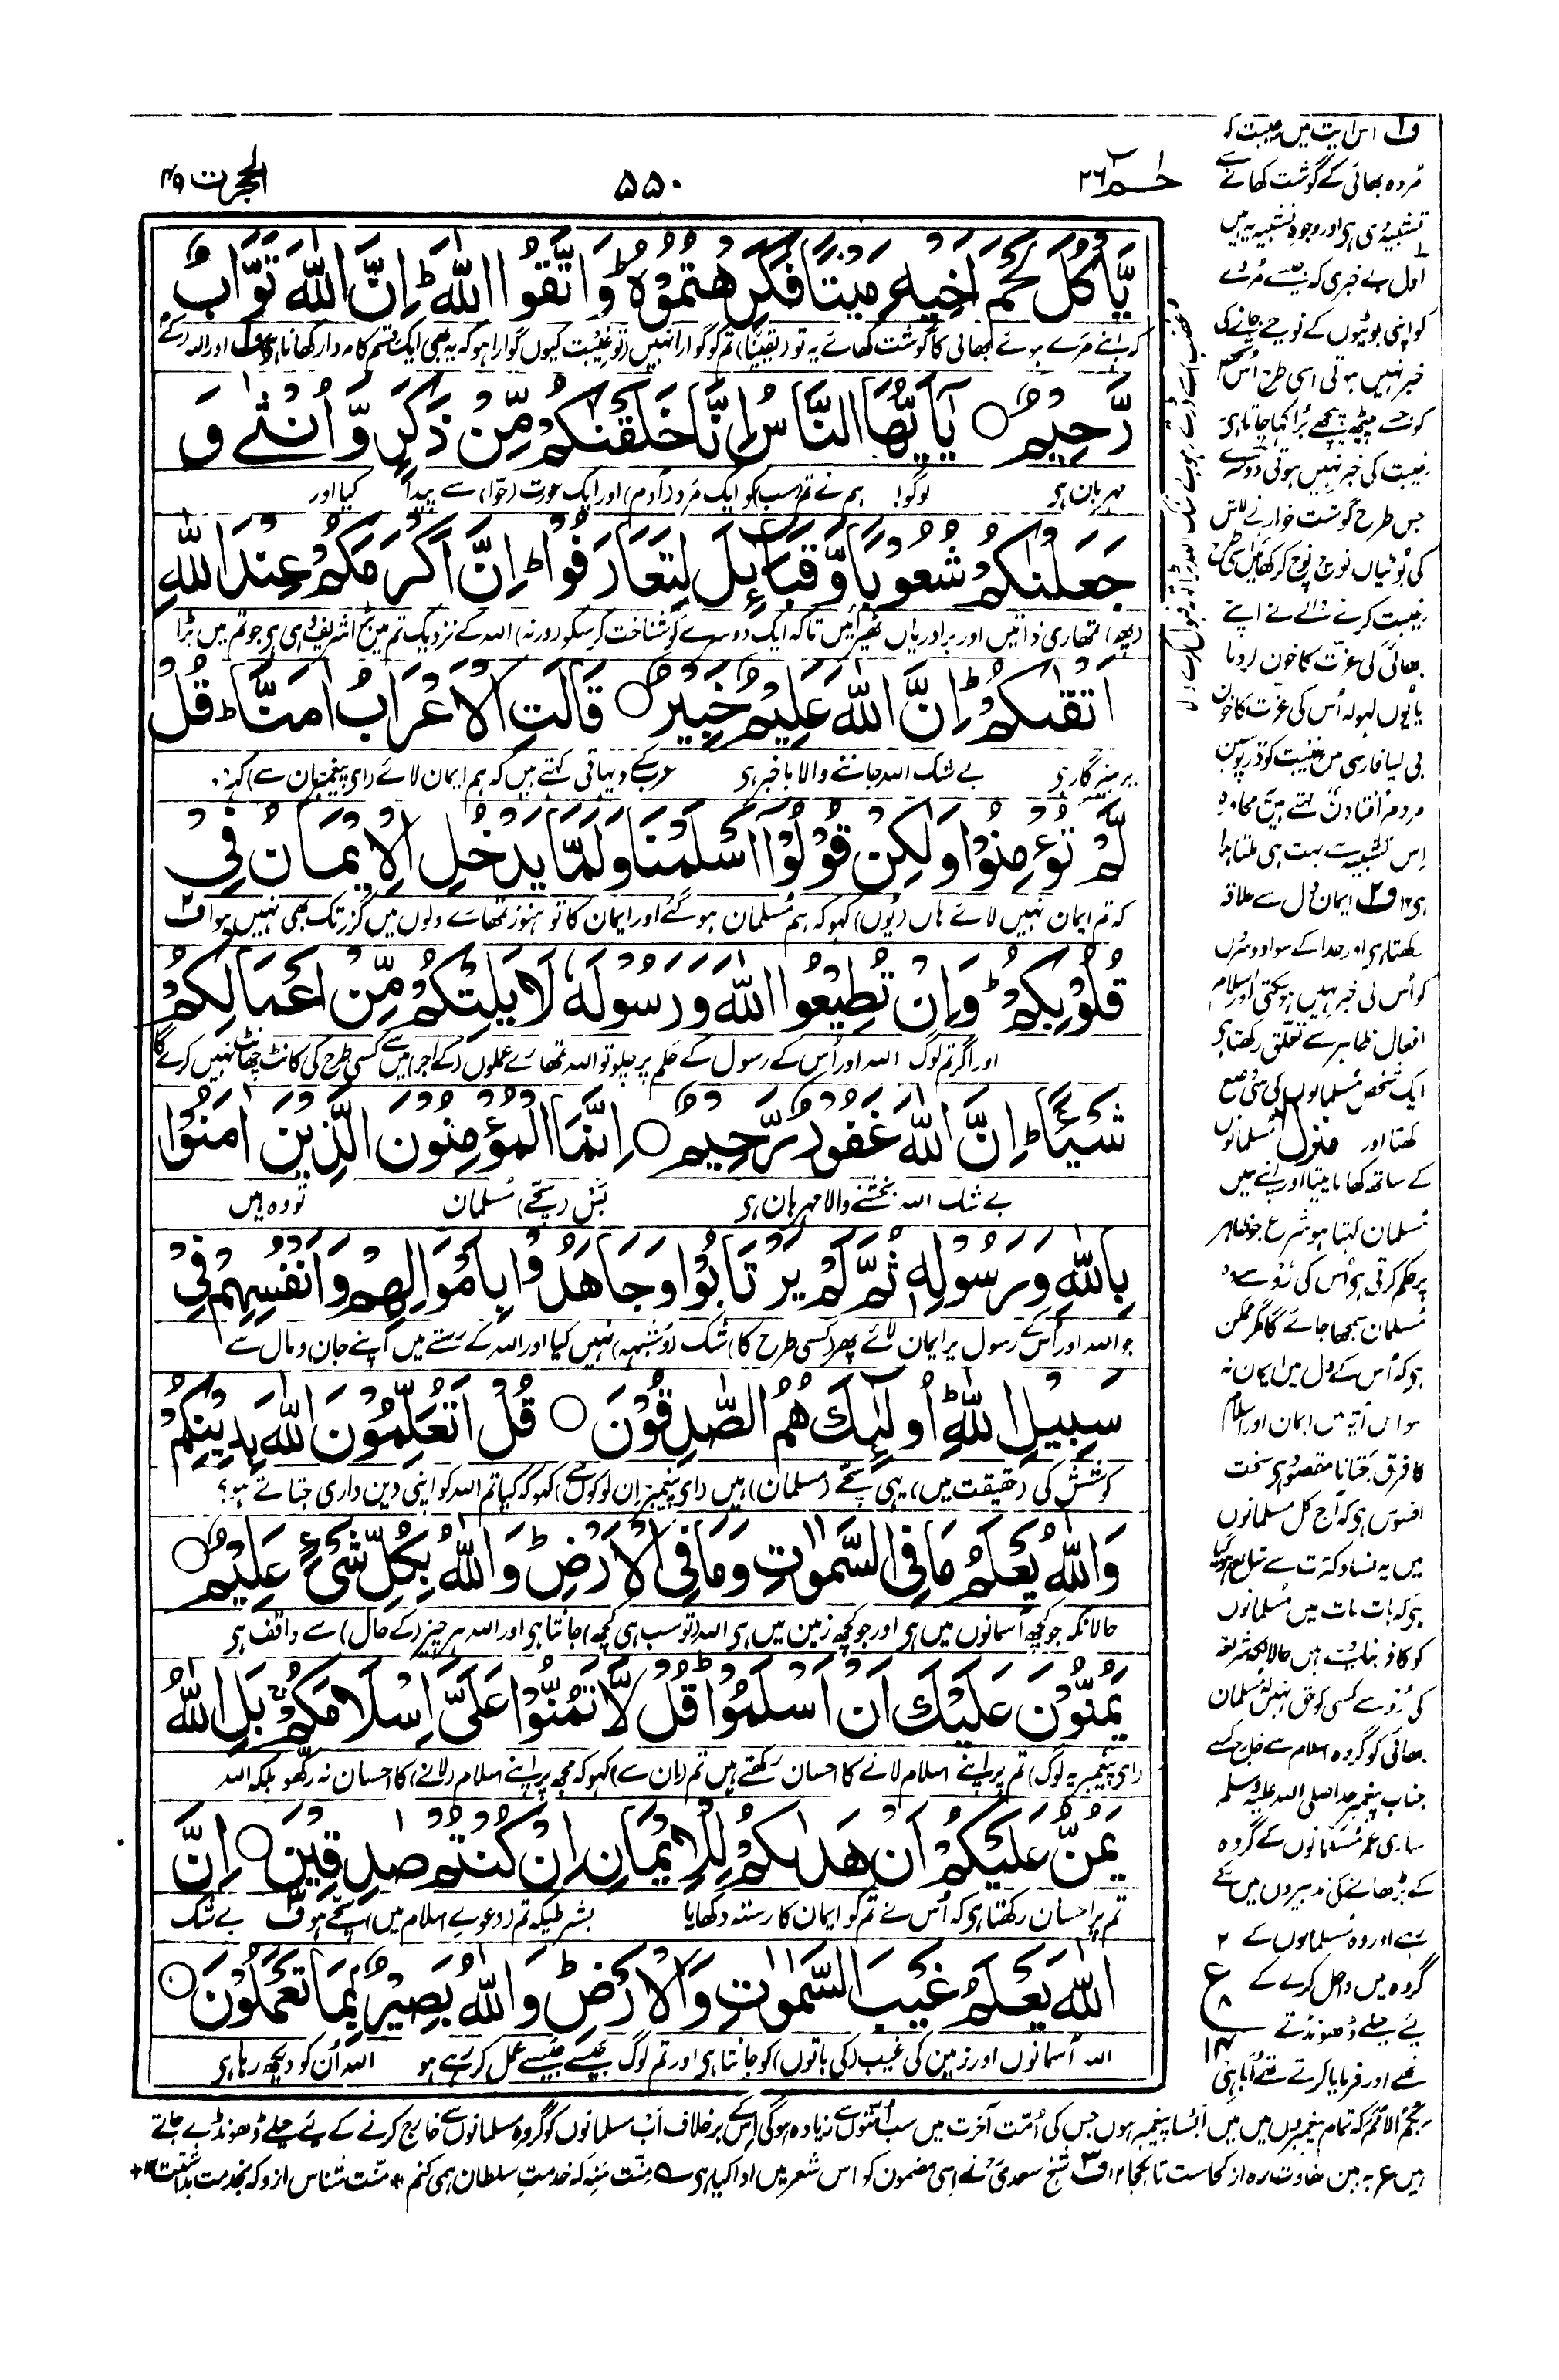 حٰمٓ ٢٦
٥٥٠
الحجرت ٤٩
يَّاۡكُلَ لَحۡمَ اَخِيۡهِ مَيۡتًا فَكَرِهۡتُمُوۡهُ ؕ وَاتَّقُوا اللّٰهَ ؕ اِنَّ اللّٰهَ تَوَّابٌ
کہ اپنے مَرے ہوئے بھائی کا گوشت کھائے یہ تو (یقینًا) تم کو گوارا نہیں (تو غیبت کیوں گوارا ہو کہ یہ بھی ایک قسم کا مردار کھانا ہی) ف۱ اور اللہ
رَّحِيۡمٌ ○ يٰۤاَيُّهَا النَّاسُ اِنَّا خَلَقۡنٰكُمۡ مِّنۡ ذَكَرٍ وَّاُنۡثٰى وَ
مہربان ہی لوگو! ہم نے تم (سب) کو ایک مرد (آدم) اور ایک عورت (حوّا) سے پیدا کیا اور
جَعَلۡنٰكُمۡ شُعُوۡبًا وَّقَبَآئِلَ لِتَعَارَفُوۡا ؕ اِنَّ اَكۡرَمَكُمۡ عِنۡدَ اللّٰهِ
(پھر) تمھاری ذاتیں اور برادریاں ٹھیرائیں تاکہ ایک دوسرے کو شناخت کر سکو (ورنہ) اللہ کے نزدیک تم میں بڑا شریف وہی ہی جو تم میں بڑا
اَتۡقٰىكُمۡ ؕ اِنَّ اللّٰهَ عَلِيۡمٌ خَبِيۡرٌ ○ قَالَتِ الۡاَعۡرَابُ اٰمَنَّا ؕ قُلۡ
پرہیزگار ہی بے شک اللہ جاننے والا باخبر ہی عرب کے دیہاتی کہتے ہیں کہ ہم ایمان لائے (اے پیغمبر ان سے) کہدو
لَّمۡ تُؤۡمِنُوۡا وَلٰكِنۡ قُوۡلُوۡۤا اَسۡلَمۡنَا وَلَمَّا يَدۡخُلِ الۡاِيۡمَانُ فِىۡ
کہ تم ایمان نہیں لائے ہاں (یوں) کہو کہ ہم مُسلمان ہو گئے اور ایمان کا تو ہنوز تمھارے دلوں میں گزر تک بھی نہیں ہوا ف۲
قُلُوۡبِكُمۡ ؕ وَاِنۡ تُطِيۡعُوا اللّٰهَ وَرَسُوۡلَهٗ لَا يَلِتۡكُمۡ مِّنۡ اَعۡمَالِكُمۡ
اور اگر تم لوگ اللہ اور اُس کے رسول کے حکم پر چلو تو اللہ تمھارے عملوں (کے اجر) میں سے کسی طرح کی کانٹ چھانٹ نہیں کرے گا
شَيۡـًٔا ؕ اِنَّ اللّٰهَ غَفُوۡرٌ رَّحِيۡمٌ ○ اِنَّمَا الۡمُؤۡمِنُوۡنَ الَّذِيۡنَ اٰمَنُوۡا
بے شک اللہ بخشنے والا مہربان ہی بَس (سچّے) مُسلمان تو وہ ہیں
بِاللّٰهِ وَرَسُوۡلِهٖ ثُمَّ لَمۡ يَرۡتَابُوۡا وَجَاهَدُوۡا بِاَمۡوَالِهِمۡ وَاَنۡفُسِهِمۡ فِىۡ
جو اللہ اور اُس کے رسول پر ایمان لائے پھر (کسی طرح کا) شک (و شبہہ) نہیں کیا اور اللہ کے رستے میں اپنے جان و مال سے
سَبِيۡلِ اللّٰهِ ؕ اُولٰٓئِكَ هُمُ الصّٰدِقُوۡنَ ○ قُلۡ اَتُعَلِّمُوۡنَ اللّٰهَ بِدِيۡنِكُمۡ
کوشش کی (حقیقت میں) یہی سچّے (مسلمان) ہیں (اے پیغمبر ان لوگوں سے) کہو کہ کیا تم اللہ کو اپنی دین داری جتاتے ہو؟
وَاللّٰهُ يَعۡلَمُ مَا فِى السَّمٰوٰتِ وَمَا فِى الۡاَرۡضِ ؕ وَاللّٰهُ بِكُلِّ شَىۡءٍ عَلِيۡمٌ ○
حالانکہ جو کچھ آسمانوں میں ہی اور جو کچھ زمین میں ہی اللہ (تو سب ہی کچھ) جانتا ہی اور اللہ ہر چیز (کے حال) سے واقف ہی
يَمُنُّوۡنَ عَلَيۡكَ اَنۡ اَسۡلَمُوۡا ؕ قُلۡ لَّا تَمُنُّوۡا عَلَىَّ اِسۡلَامَكُمۡ ۚ بَلِ اللّٰهُ
(اے پیغمبر یہ لوگ) تم پر اپنے اسلام لانے کا احسان رکھتے ہیں تم (ان سے) کہو کہ مجھ پر اپنے اسلام (لانے) کا احسان نہ رکھو بلکہ اللہ
يَمُنُّ عَلَيۡكُمۡ اَنۡ هَدٰىكُمۡ لِلۡاِيۡمَانِ اِنۡ كُنۡتُمۡ صٰدِقِيۡنَ ○ اِنَّ
تم پر احسان رکھتا ہی کہ اُس نے تم کو ایمان کا رستہ دکھایا بشرطیکہ تم (دعوے اسلام میں) سچّے ہو ف۳ بے شک
اللّٰهَ يَعۡلَمُ غَيۡبَ السَّمٰوٰتِ وَالۡاَرۡضِ ؕ وَاللّٰهُ بَصِيۡرٌۢ بِمَا تَعۡمَلُوۡنَ ○
اللہ آسمانوں اور زمین کی غیب (کی باتوں) کو جانتا ہی اور تم لوگ جیسے جیسے عمل کر رہے ہو اللہ اُن کو دیکھ رہا ہی
ف۱ اس آیت میں غیبت کو
مُردہ بھائی کے گوشت کھانے سے
تشبیہ دی ہی اور وجوہِ تشبیہ یہ ہیں
اول بے خبری کہ جیسے مُردے
کو اپنی بوٹیوں کے نوچے جانے کی
خبر نہیں ہوتی اسی طرح اُس شخص
کو جسے پیٹھ پیچھے بُرا کہا جاتا ہی
غیبت کی خبر نہیں ہوتی دوسرے
جس طرح گوشت خوار نے لاش
کی بوٹیاں نوچ نوچ کر کھائیں اسی طرح
غیبت کرنے والے نے اپنے
بھائی کی عزّت کا خون کر دیا
یا یوں کہو کہ اُس کی عزت کا خون
پی لیا فارسی میں غیبت کو در پوستین
مردم اُفتادن کہتے ہیں یہ محاورہ
اِس تشبیہ سے بہت ہی ملتا ہوا
ہی ۱۲ ف۲ ایمان دل سے علاقہ
رکھتا ہی اور خدا کے سوا دوسروں
کو اُس کی خبر نہیں ہو سکتی اور اسلام
افعالِ ظاہر سے تعلّق رکھتا ہی
ایک شخص مُسلمانوں کی سی وضع
رکھتا اور مُسلمانوں
منزل
کے ساتھ کھاتا پیتا اور اپنے تئیں
مُسلمان کہتا ہو شرع جو ظاہر
پر حکم کرتی ہی اُس کی رُو سے وہ
مُسلمان سمجھا جائے گا مگر ممکن
ہی کہ اُس کے دل میں ایمان نہ
ہو اس آیت میں ایمان اور اسلام
کا فرق جتانا مقصود ہی سخت
افسوس ہی کہ آج کل مسلمانوں
میں یہ فساد کثرت سے شایع ہو گیا
ہی کہ بات بات میں مُسلمانوں
کو کافر بنا دیتے ہیں حالانکہ شریعت
کی رُو سے کسی کو حق نہیں کہ مسلمان
بھائی کو گروہِ اسلام سے خارج کرے
جناب پیغمبر خدا صلی اللہ علیہ وسلم
ساری عمر مُسلمانوں کے گروہ
کے بڑھانے کی تدبیروں میں لگے
رہے اور وہ مُسلمانوں کے ۲
گروہ میں داخل کرنے کے
لیے حیلے ڈھونڈتے
تھے اور فرمایا کرتے تھے
ع ٨ ١٤
بِكُمُ الۡاُمَمَ کہ تمام پیغمبروں میں میں ایسا پیغمبر ہوں جس کی اُمّت آخرت میں سب اُمّتوں سے زیادہ ہو گی اِس کے برخلاف اَب مسلمانوں کو گروہِ مسلمانوں سے خارج کرنے کے لیے حیلے ڈھونڈے جاتے
ہیں ع ببین تفاوت رہ از کجاست تا بکجا ۱۲ ف۳ شیخ سعدیؒ نے اسی مضمون کو اس شعر میں ادا کیا ہی ؎ مِنّت مَنِہ کہ خدمتِ سلطان ہمی کنم + منّت شناس ازو کہ بخدمت بداشتت ۱۲ +